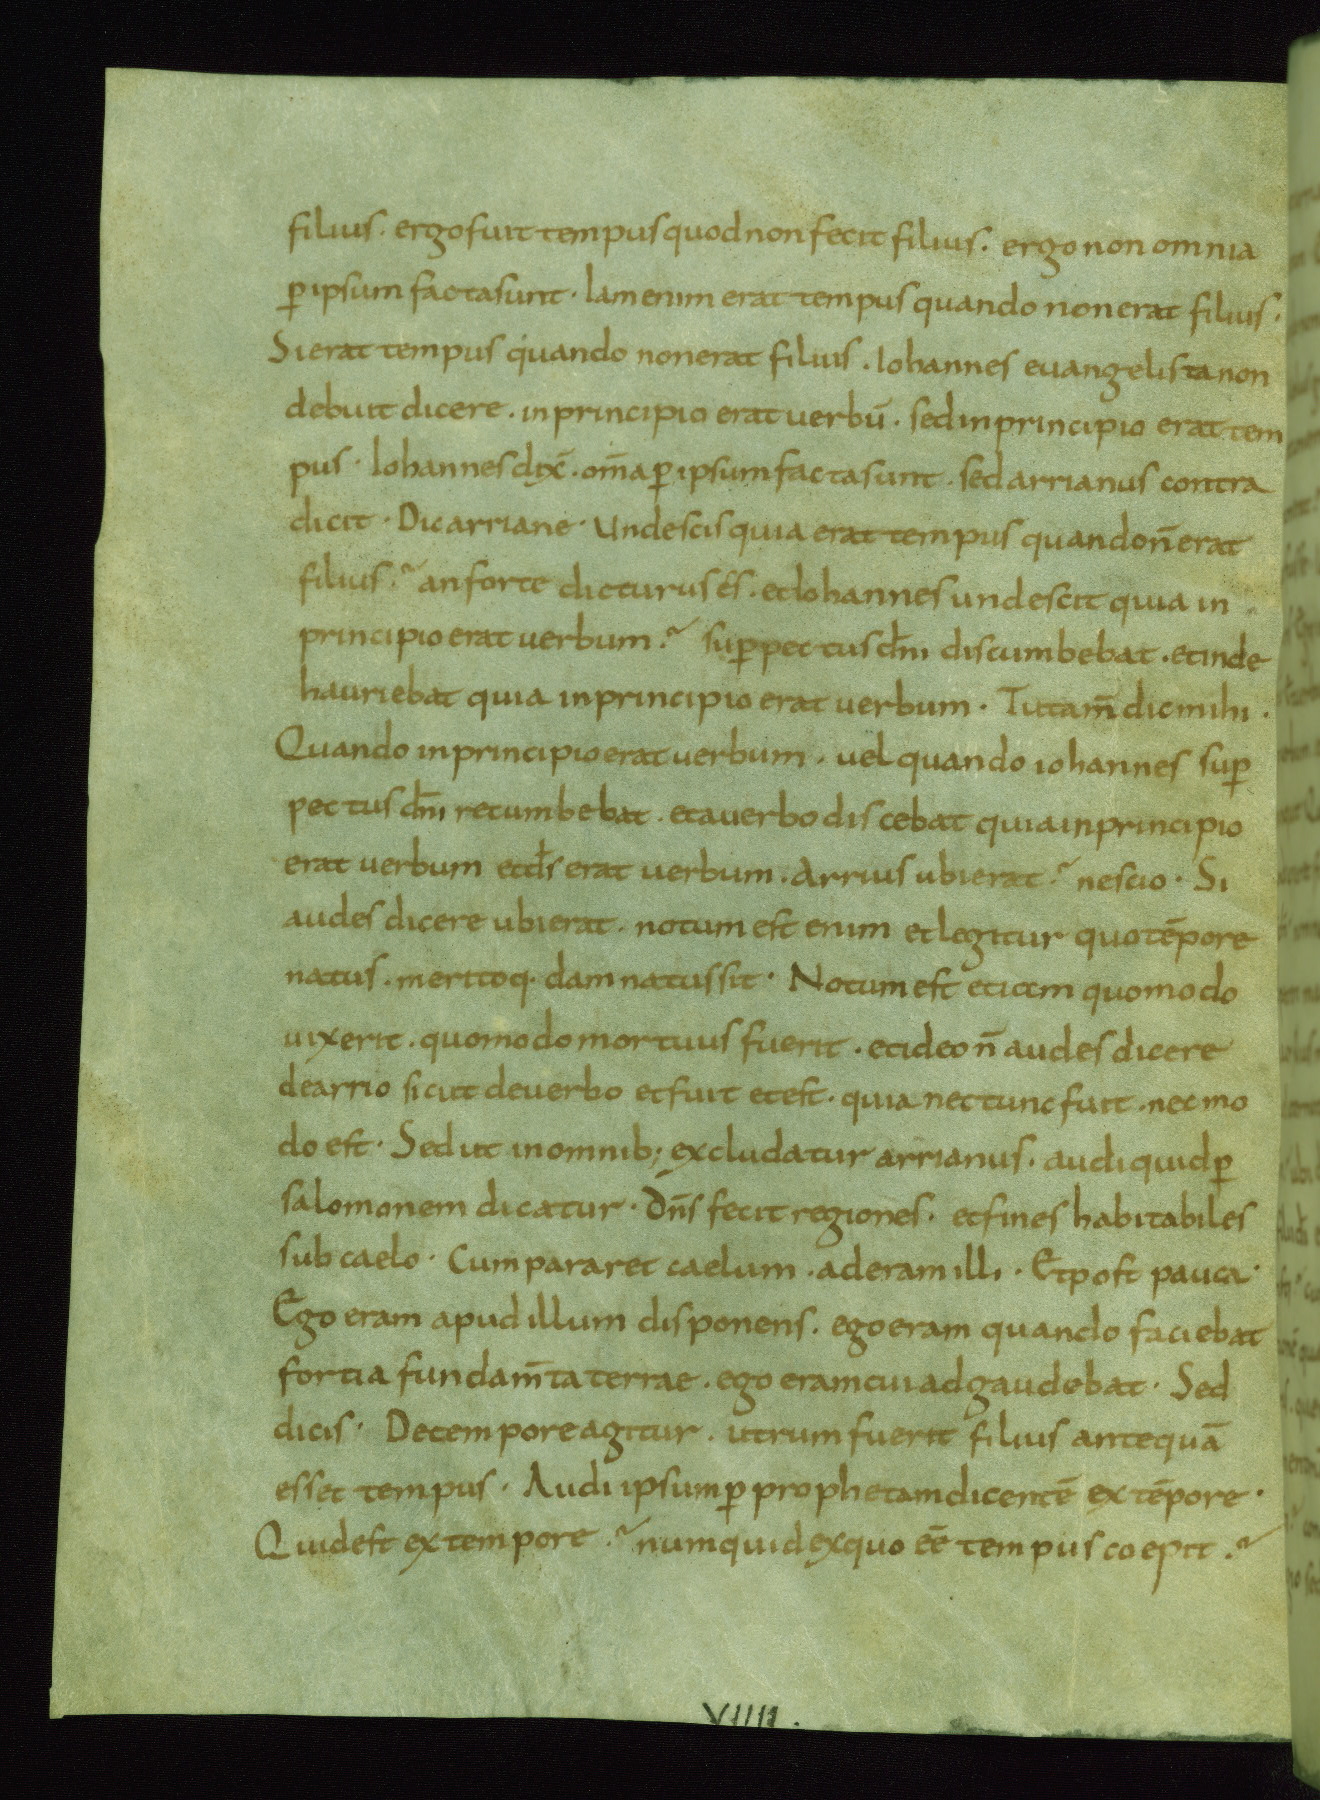 filius · ergo fuit tempus quod non fecit filius · ergo non omnia
ꝑ ipsum facta sunt · Iam enim erat tempus quando non erat filius ·
Si erat tempus quando non erat filius · Iohannes euangelista non
debuit dicere · in principio erat uerbū · sed in principio erat tem
pus · Iohannes dix̄ · om̄a ꝑ ipsum facta sunt · sed arrianus contra
dicit · Dic arriane · Unde scis quia erat tempus quando n̄ erat
filius ? an forte dicturus és · et Iohannes unde scit quia in
principio erat uerbum ? suꝑ pectus dn̄i discumbebat · et inde
hauriebat quia in principio erat uerbum · Tu tam̄ dic mihi ·
Quando in principio erat uerbum · uel quando iohannes suꝑ
pectus dn̄i recumbebat · et a uerbo discebat quia in principio
erat uerbum et ds̄ erat uerbum · Arrius ubi erat ? nescio · Si
audes dicere ubi erat · notum est enim et legitur quo tēpore
natus · meritoq· damnatus sit · Notum est etiam quomodo
uixerit · quomodo mortuus fuerit · et ideo n̄ audes dicere
de arrio sicut de uerbo et fuit et est · quia nec tunc fuit · nec mo
do est · Sed ut in omnib; excludatur arrianus · audi quid ꝑ
salomonem dicatur · Dn̄s fecit regiones · et fines habitabiles
sub caelo · Cum pararet caelum · aderam illi · Et post pauca ·
Ego eram apud illum disponens · ego eram quando faciebat
fortia fundam̄ta terrae · ego eram cui adgaudebat · Sed
dicis · De tempore agitur · utrum fuerit filius antequā
esset tempus · Audi ipsum ꝑ prophetam dicentē ex tēpore ·
Quid est ex tempore ? numquid ex quo eē tempus coepit ?
VIIII ·